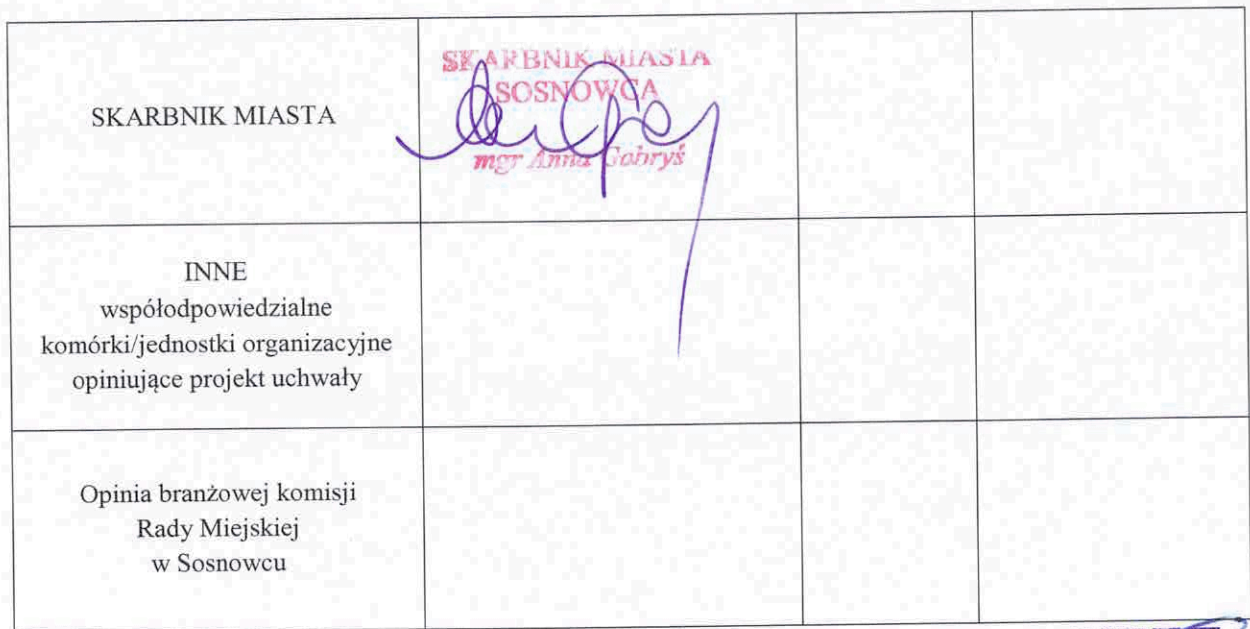 SKARBNIK MIASTA
SKARBNIK MIASTA
SOSNOWCA
mgr Anna Gobryś
INNE
współodpowiedzialne
komórki/jednostki organizacyjne
opiniujące projekt uchwały
Opinia branżowej komisji
Rady Miejskiej
w Sosnowcu